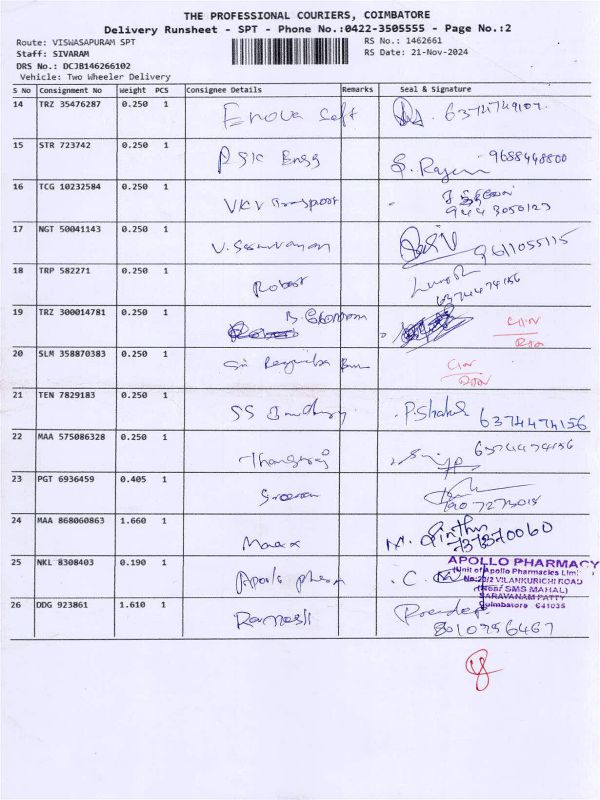 THE PROFESSIONAL COURIERS, COIMBATORE
Delivery Runsheet - SPT - Phone No.:0422-3505555 - Page No.:2
Route: VISWASAPURAM SPT RS No.: 1462661
Staff: SIVARAM RS Date: 21-Nov-2024
DRS No.: DCJB146266102
Vehicle: Two Wheeler Delivery
S No Consignment No Weight PCS Consignee Details Remarks Seal & Signature
14 TRZ 35476287 0.250 1 Enova Soft
15 STR 723742 0.250 1 PSK Engg 9688448800
16 TCG 10232584 0.250 1 VKV Transport
9443050123
17 NGT 50041143 0.250 1 V. Saravanan 9611055115
18 TRP 582271 0.250 1 Robert
6374474156
19 TRZ 300014781 0.250 1
20 SLM 358870383 0.250 1 Sri
21 TEN 7829183 0.250 1 SS 6374474156
22 MAA 575086328 0.250 1 Thangaraj 6374474156
23 PGT 6936459 0.405 1 Sreeram
24 MAA 868060863 1.660 1
25 NKL 8308403 0.190 1 Apollo
APOLLO PHARMACY
(Unit of Apollo Pharmacies Lim
VILANKURICHI ROAD
(Near SMS MAHAL)
SARAVANAM PATTY
Coimbatore - 641035
26 DDG 923861 1.610 1 Ramesh Pradeep
8010756467